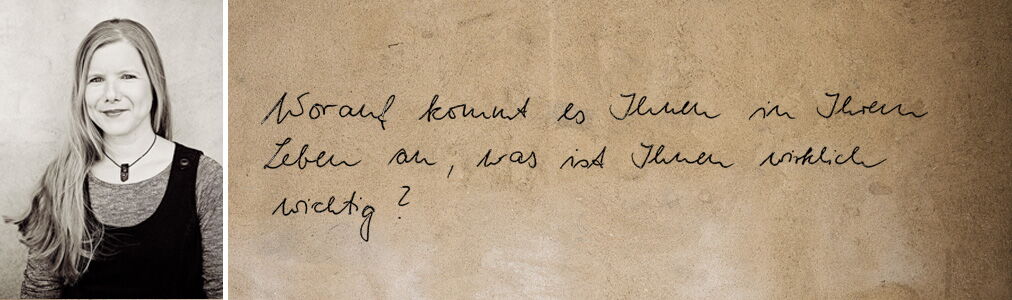 Worauf kommt es Ihnen in Ihrem
Leben an, was ist Ihnen wirklich
wichtig?